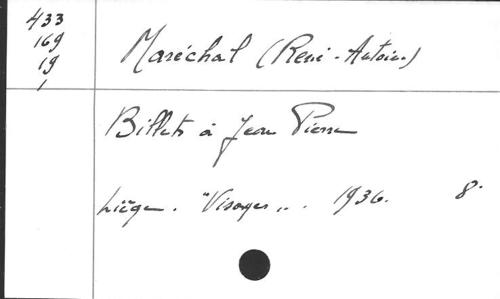 433
169
19
1
Maréchal (René-Antoine)
Billets à Jean Pierre
Liége. "Visages". 1936. 8°